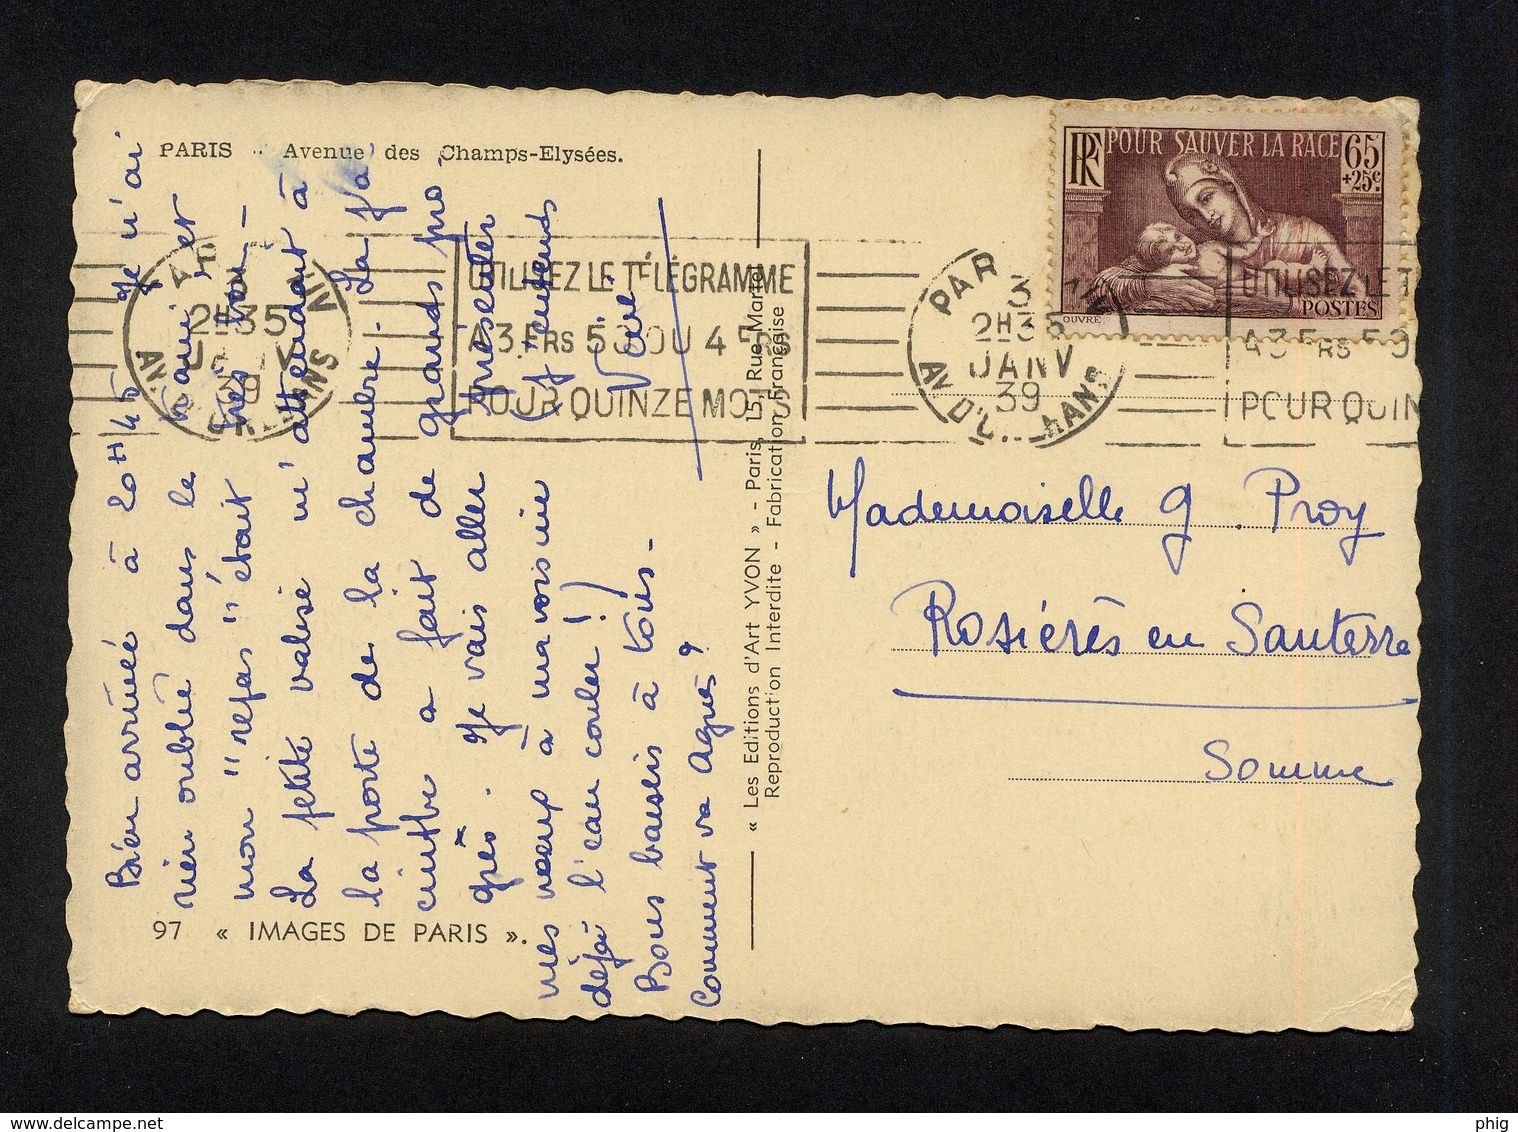 PARIS - Avenue des Champs-Elysées.
Bien arrivée à 20H45 Je n'ai
rien oublié dans le et
mon "repas" était très bon -
La petite valise m'attendait à
la porte de la chambre. La p'a
a fait de grands pro
grès. Je vais aller présenter
mes voeux à ma voisine (J'entends
déjà l'eau couler !)
Bons baisers à tous -
Comment va Agnès ?
97 « IMAGES DE PARIS ».
« Les Editions d'Art YVON » - Paris, 15, Rue Martel
Reproduction Interdite - Fabrication Française
2H35
39
AV. D'ORLEANS
UTILISEZ LE TÉLÉGRAMME
A 3 FRS 50 OU 4 FRS
POUR QUINZE MOTS
PAR
3
2H35
JANV
39
RF
POUR SAUVER LA RACE
65
+25c.
POSTES
OUVRÉ
UTILISEZ LE T
A 3 FRS 50
POUR QUIN
Mademoiselle G. Proy
Rosières en Santerre
Somme
delcampe.net
phig